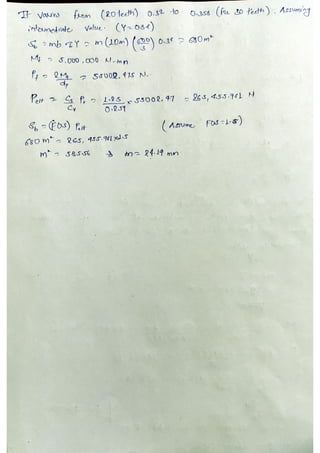 It varies from (20 teeth) 0.32 to 0.358 (for 30 teeth). Assuming
intermediate value. (Y = 0.34)
S_b = mb σ Y = m (10m) (600/3) 0.34 = 680m²
M_t = 5,000,000 N-mm
P_t = 2M_t/d_t = 55002.475 N.
P_eff = C_s/C_v P_t = 1.25/0.259 × 55002.47 = 265,455.961 N
S_b = (FOS) P_eff (Assume FOS = 1.5)
680m² = 265,455.961 × 1.5
m² = 585.56 → m = 24.19 mm